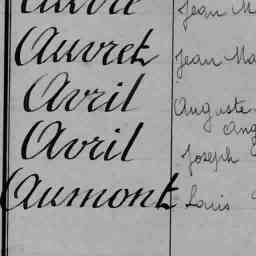 Auvret Jean Ma
Avril Auguste
Ang
Avril Joseph
Aumont Louis